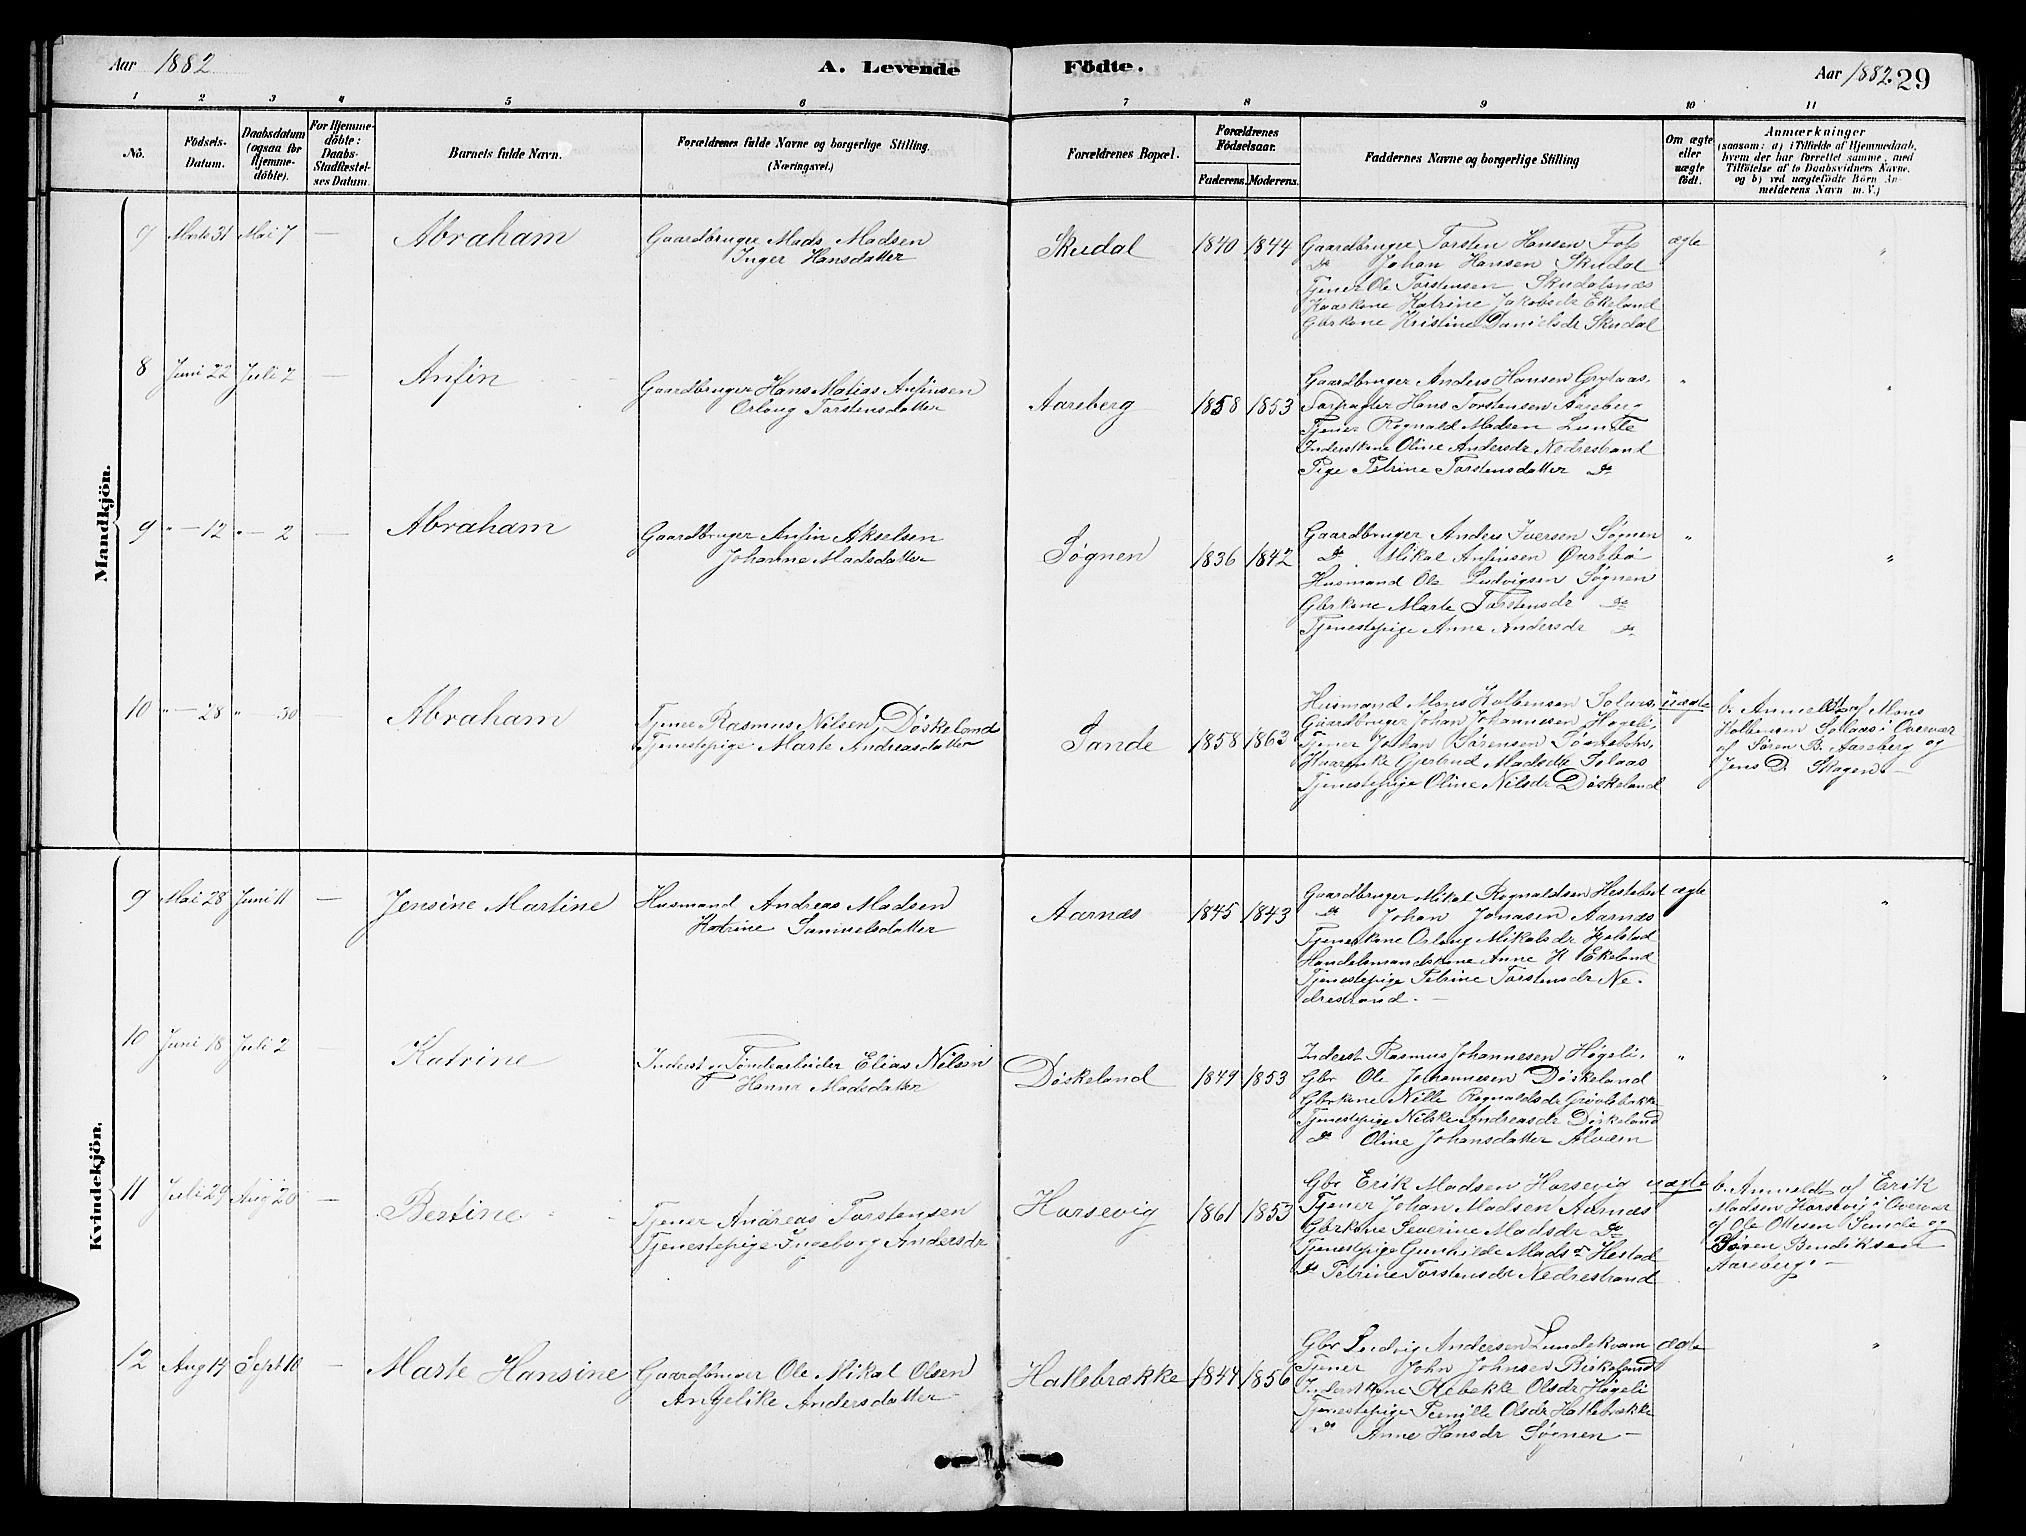 Aar 1882 A. Levende Födte. Aar 1882 29
1 2 3 4 5 6 7 8 9 10 11
Nö.
Födsels-
Datum.
Daabsdatum
(ogsaa for
Hjemme-
döbte).
For Hjemme-
döbte:
Daabs-
Stadfæstel-
ses Datum.
Barnets fulde Navn.
Forældrenes fulde Navne og borgerlige Stilling.
(Næringsvei.)
Forældrenes Bopæl.
Forældrenes
Födselsaar.
Faderens. Moderens.
Faddernes Navne og borgerlige Stilling
Om ægte
eller
uægte
födt.
Anmærkninger
(saasom: a) i Tilfælde af Hjemmedaab,
hvem der har forrettet samme, med
Tilföielse af to Daabsvidners Navne.
og b) ved uægtefödte Börn An-
melderens Navn m.V.)
Mandkjön.
9 Marts 31 Mai 7 — Abraham
Gaardbruger Mads Madsen
Inger Hansdatter
Skudal 1840 1844
Gaardbruger Torsten Hansen
do Johan Hansen Skudal
Tjener Ole Torstensen Skudalsnæs
Kaarkone Katrine Jakobsdr Ekeland
Gbrkone Kristine Danielsdr Skudal
ægte "
8 Juni 22 Juli 2 — Anfin
Gaardbruger Hans Matias Anfinsen
Orloug Torstensdatter
Aareberg 1858 1853
Gaardbruger Anders Hansen Grytaas.
Forpagter Hans Torstensen Aareberg
Tjener Rognald Madsen Lunde
Inderstkone Oline Andersdr Nedrestrand
Pige Petrine Torstensdatter do
" "
9 " — 12 " — 2 — Abraham
Gaardbruger Anfin Akselsen
Johanne Madsdatter
Søgnen 1836 1842
Gaardbruger Anders Iversen Søgnen
do Mikal Anfinsen Øvrebø
Husmand Ole Ludvigsen Søgnen
Gbrkone Marte Torstensdr do
Tjenestepige Anne Andersdr do
" "
10 " — 28 " — 30 — Abraham
Tjener Rasmus Nilsen Døskeland
Tjenestepige Marte Andreasdatter
Sande 1858 1863
Husmand Mons Kolbensen Solaas.
Gaardbruger Johan Johannesen Høgeli,
Tjener Johan Sørensen
Gjertrud Madsdr Solaas
Tjenestepige Oline Nilsdr Døskeland
uægte
b. Anmeldt af Mons
Kolbensen Solaas i Overvær
af Søren B. Aareberg og
Jens D. Skagen. —
Kvindekjön.
9 Mai 28 Juni 11 — Jensine Martine
Husmand Andreas Madsen
Katrine Samuelsdatter
Aarnæs 1845 1843
Gaardbruger Mikal Rognaldsen Hestebeit
do Johan Jonasen Aarnæs
Tjenerkone Orloug Mikalsdr Hjelstad
Handelsmandskone Anne H Ekeland
Tjenestepige Petrine Torstensdr Ne-
drestrand. —
ægte "
10 Juni 18 Juli 2 — Katrine
Inderst og Tøndearbeider Elias Nilsen
Hanna Madsdatter
Døskeland 1849 1853
Inderst Rasmus Johannesen Høgeli.
Gbr Ole Johannesen Døskeland
Gbrkone Nille Rognaldsdr
Tjenestepige Nilske Andreasdr Døskeland
do Oline Johansdatter Alværn
" "
11 Juli 29 Aug 20 — Bertine
Tjener Andreas Torstensen
Tjenestepige Ingeborg Andersdr
Horsevig 1861 1853
Gbr Erik Madsen Horsevig
Tjener Johan Madsen Aarnæs
Gbrkone Severine Madsdr do
Tjenestepige Gunhilde Madsdr Hestad
do Petrine Torstensdr Nedrestrand
uægte
b. Anmeldt af Erik
Madsen Horsevig i Overvær
af Ole Ottesen Sande og
Søren Bendiksen
Aareberg. —
12 Aug 14 Sept 10 — Marte Hansine
Gaardbruger Ole Mikal Olsen
Angelike Andersdatter
Hatlebrække 1847 1856
Gbr Ludvig Andersen Lundekvam
Tjener John Johnsen Birkelandt
Inderstkone Rebekke Olsdr Høgeli
Tjenestepige Pernille Olsdr Hatlebrække
do Anne Hansdr Søgnen —
ægte "